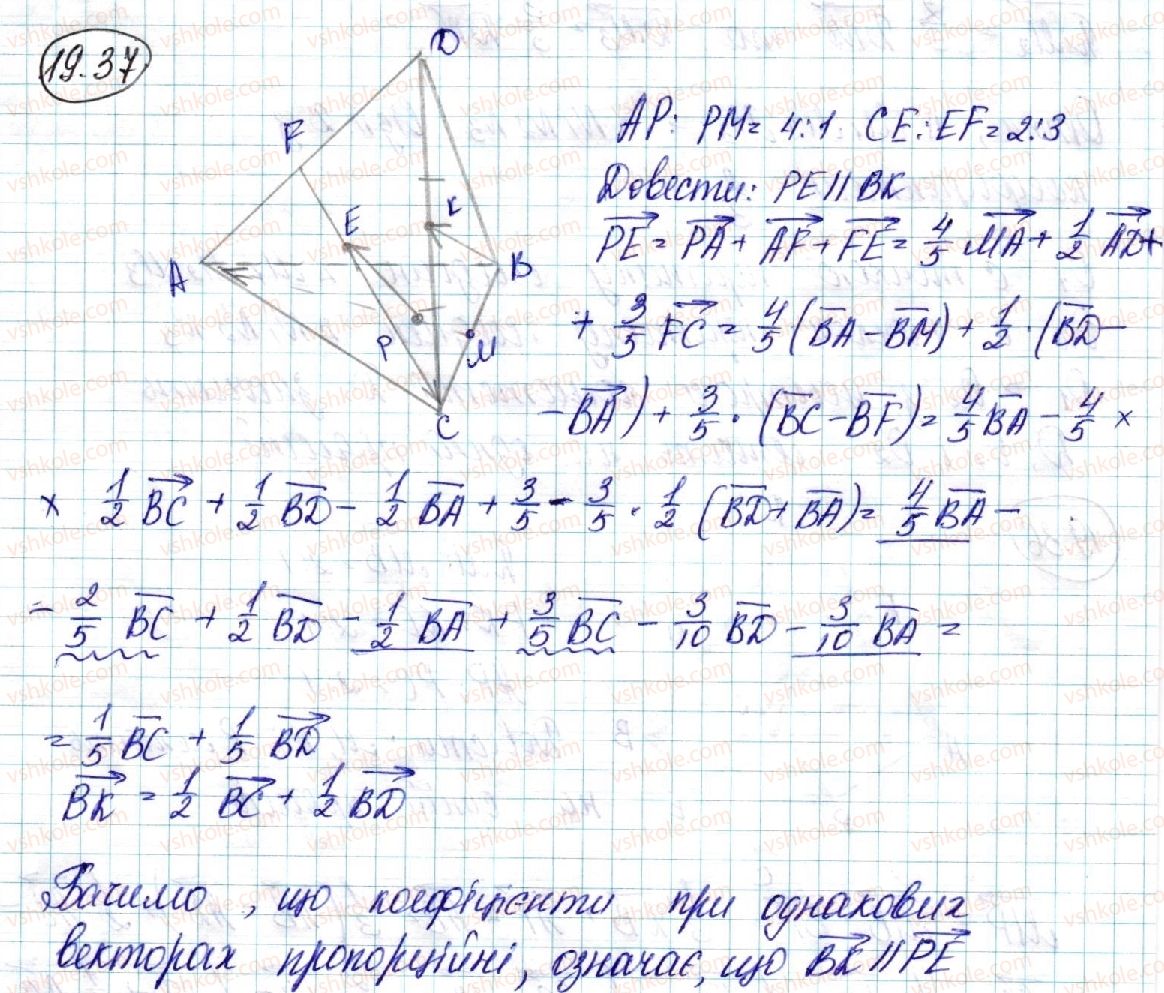 19.37
D
F
E
K
A
B
P
M
C
AP : PM = 4:1 CE : EF = 2:3
Довести: PE || BK
PE = PA + AF + FE = 4/5 MA + 1/2 AD +
+ 3/5 FC = 4/5 (BA − BM) + 1/2 · (BD −
− BA) + 3/5 · (BC − BF) = 4/5 BA − 4/5 ×
× 1/2 BC + 1/2 BD − 1/2 BA + 3/5 − 3/5 · 1/2 (BD + BA) = 4/5 BA −
− 2/5 BC + 1/2 BD − 1/2 BA + 3/5 BC − 3/10 BD − 3/10 BA =
= 1/5 BC + 1/5 BD
BK = 1/2 BC + 1/2 BD
Бачимо, що коефіцієнти при однакових
векторах пропорційні, означає, що BK || PE